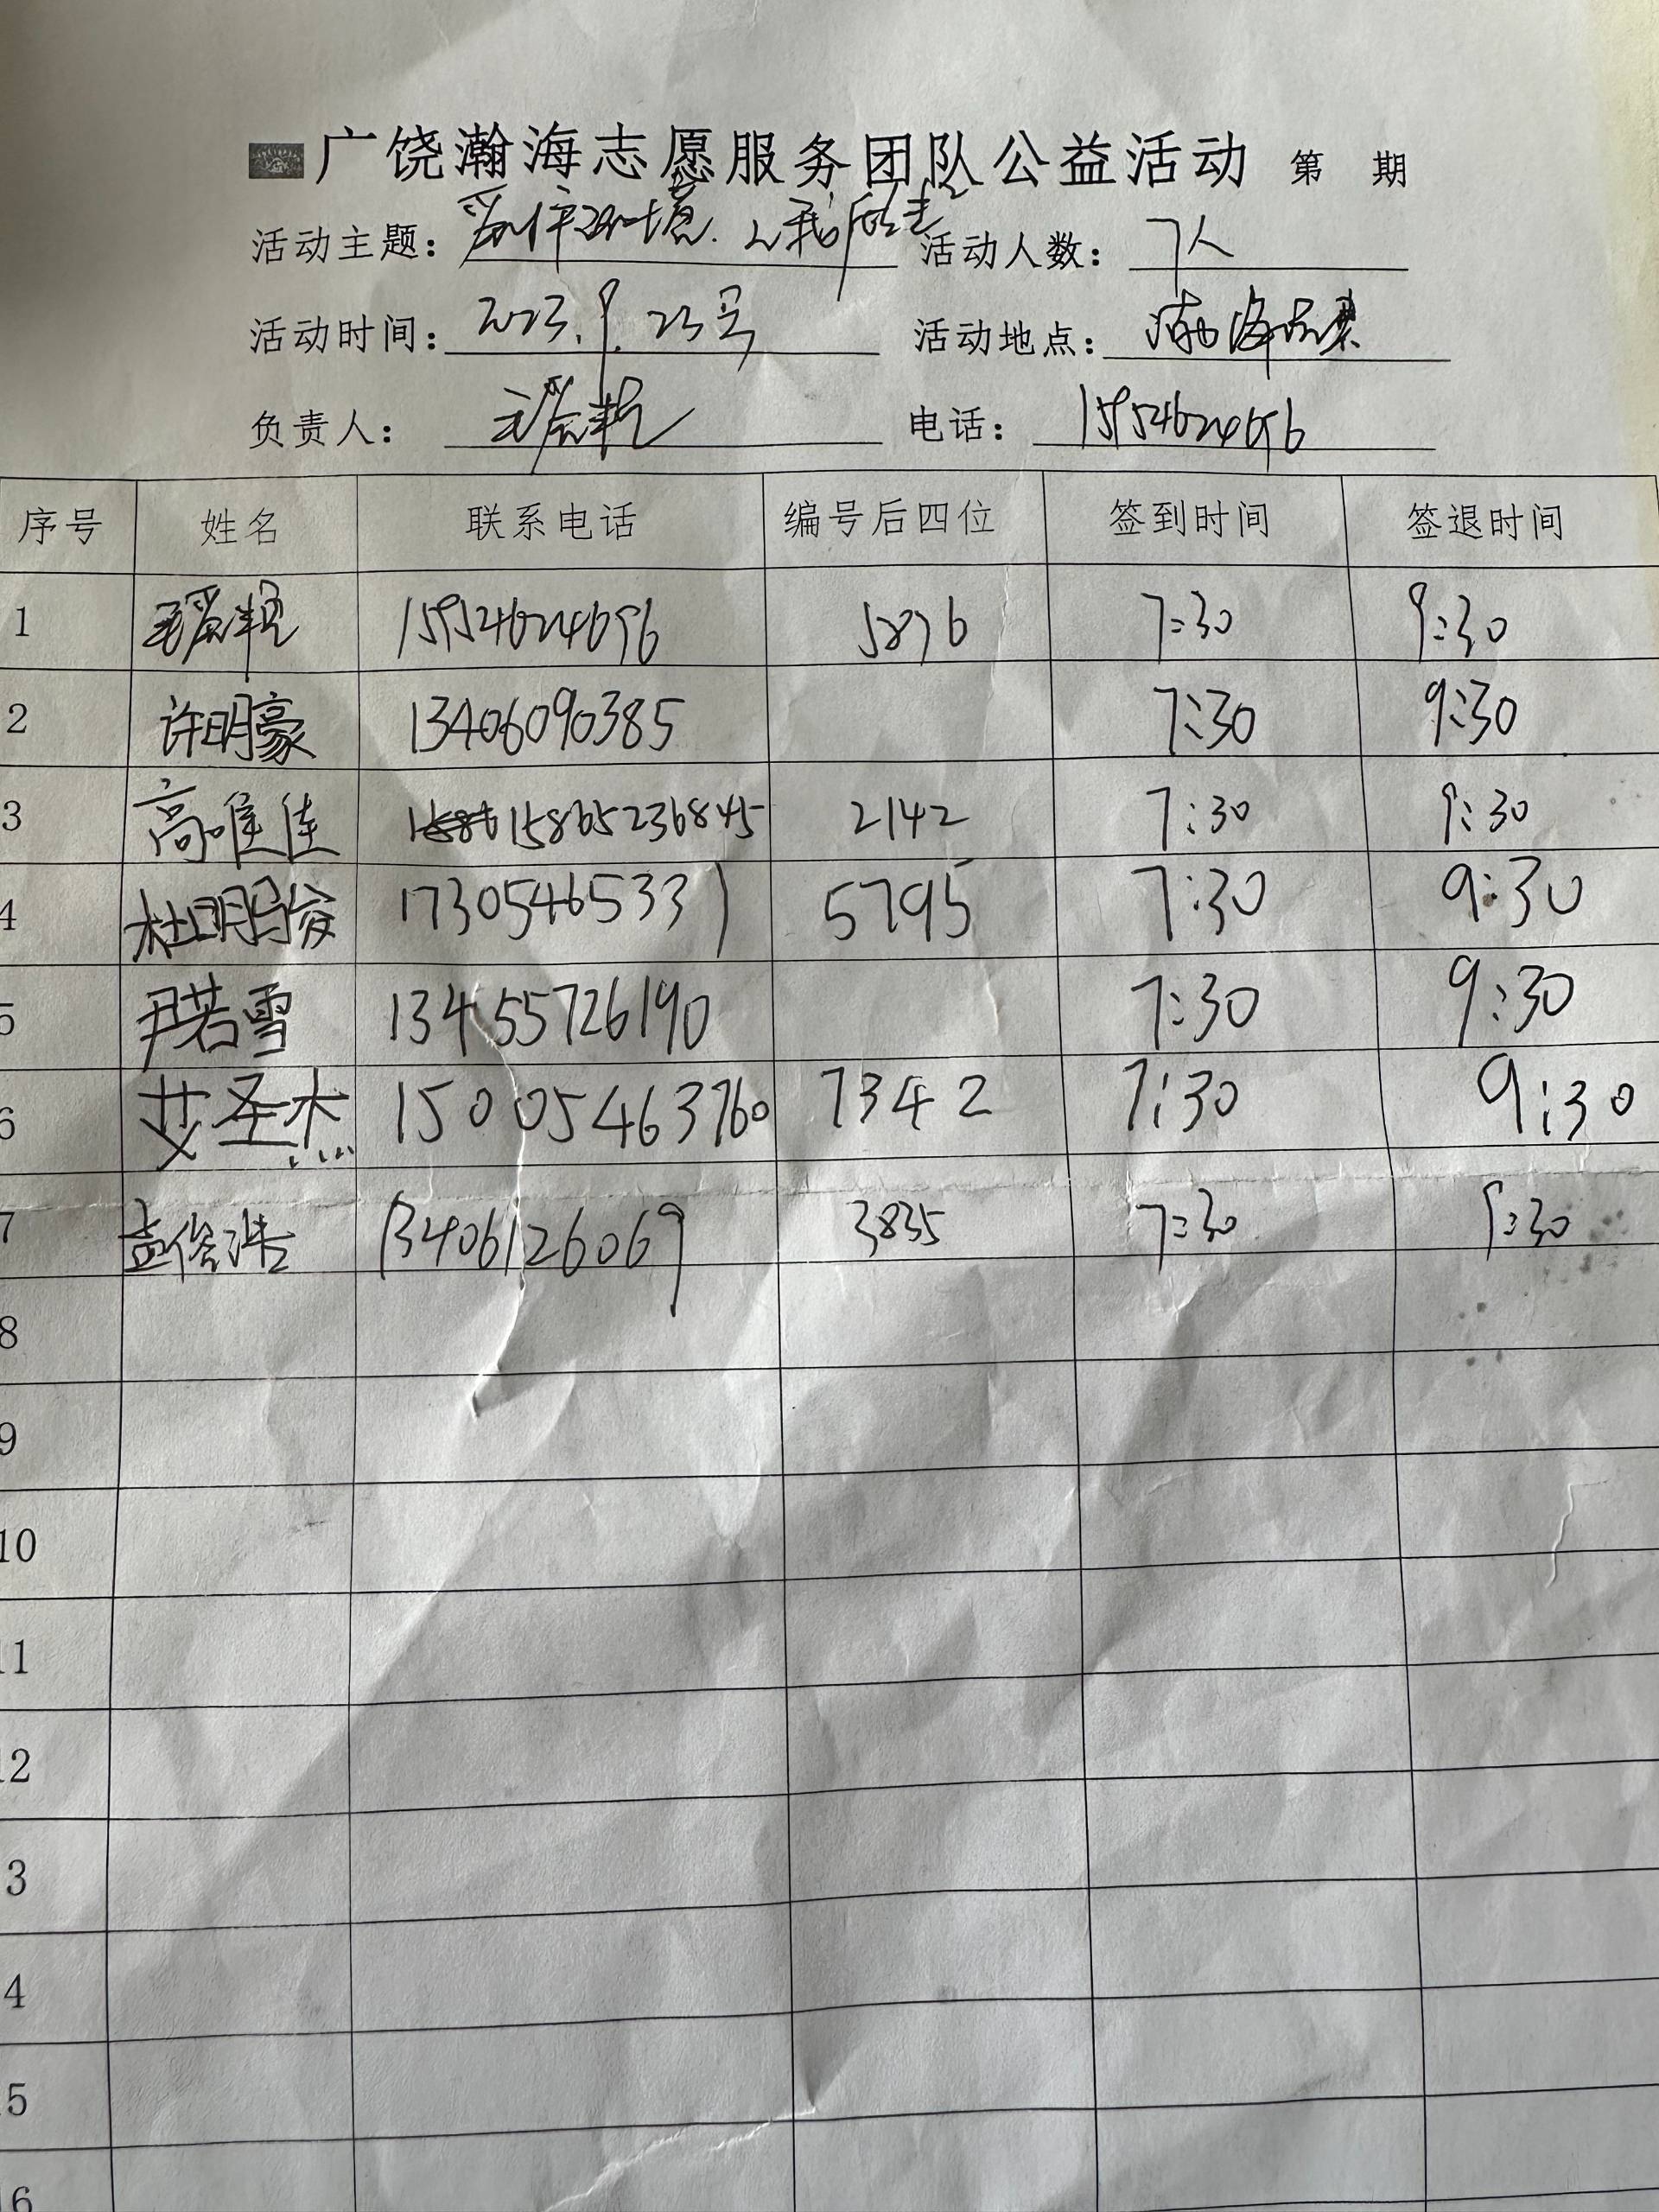 广饶瀚海志愿服务团队公益活动 第 期
活动主题： 环境.从我 活动人数： 7人
活动时间： 2023.9.23号 活动地点： 渤海
负责人： 电话： 15954624696
序号 姓名 联系电话 编号后四位 签到时间 签退时间
1 15954624696 5876 7:30 9:30
2 许明豪 13406090385 7:30 9:30
3 高唯佳 15865236845 2142 7:30 9:30
4 杜明俊 17305465331 5795 7:30 9:30
5 尹若雪 13455726190 7:30 9:30
6 艾圣杰 15005463760 7342 7:30 9:30
7 孟俊浩 13406126069 3835 7:30 9:30
8
9
10
11
12
3
4
5
6